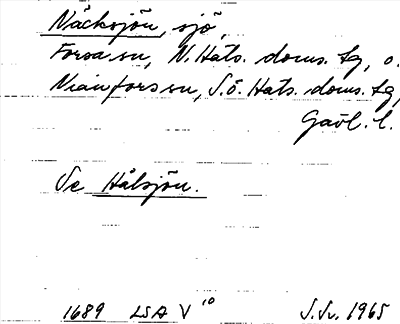 Näcksjön, sjö,
Forsa sn, N. Häls. doms. tg, o.
Nianfors sn, S.ö. Häls. doms. tg,
Gävl. l.
Se Hålsjön.
1689 LSA V 10 S.Sv. 1965